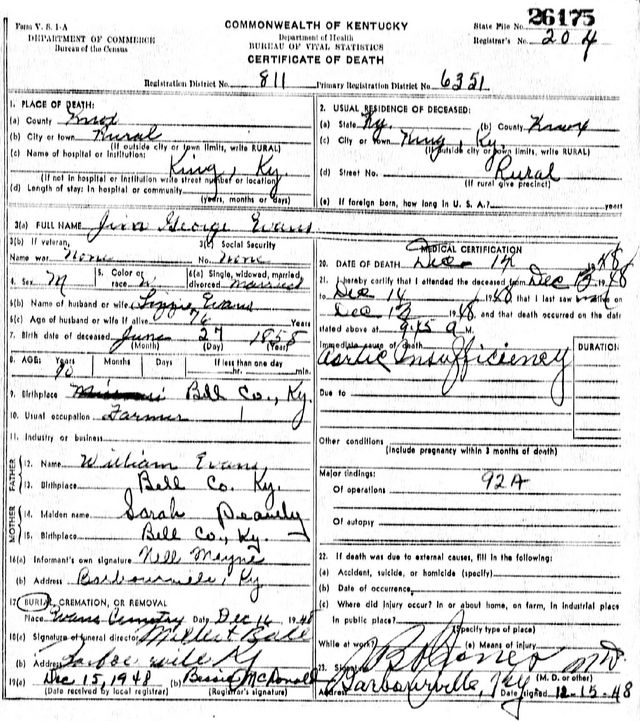 Form V. S. 1-A
DEPARTMENT OF COMMERCE
Bureau of the Census
COMMONWEALTH OF KENTUCKY
Department of Health
BUREAU OF VITAL STATISTICS
CERTIFICATE OF DEATH
State File No. 26175
Registrar's No. 204
Registration District No. 811 Primary Registration District No. 6351
1. PLACE OF DEATH:
(a) County Knox
(b) City or town Rural
(If outside city or town limits, write RURAL)
(c) Name of hospital or Institution:
King, Ky
(If not in hospital or Institution write street number or location)
(d) Length of stay: In hospital or community
(years, months or days)
2. USUAL RESIDENCE OF DECEASED:
(a) State Ky. (b) County Knox
(c) City or town King, Ky.
(If outside city or town limits, write RURAL)
(d) Street No. Rural
(If rural give precinct)
(e) If foreign born, how long in U. S. A.? years
3(a) FULL NAME Jim George Evans
3(b) If veteran, Name war None
3(c) Social Security No. None
4. Sex M 5. Color or race W 6(a) Single, widowed, married, divorced married
6(b) Name of husband or wife Lizzie Evans
6(c) Age of husband or wife if alive 76 Years
7. Birth date of deceased June 27 1858
(Month) (Day) (Year)
8. AGE: Years 90 Months Days If less than one day hr. min.
9. Birthplace Bell Co., Ky.
10. Usual occupation Farmer
11. Industry or business
FATHER
12. Name William Evans
13. Birthplace Bell Co. Ky.
MOTHER
14. Maiden name Sarah
15. Birthplace Bell Co., Ky.
16(a) Informant's own signature Nell
(b) Address Barbourville, Ky
17. BURIAL, CREMATION, OR REMOVAL
Place Evans Cemetry Date Dec 16 1948
18(c) Signature of funeral director
(b) Address Barbourville Ky
19(a) Dec 15, 1948 (b) Bessie McDonald
(Date received by local registrar) (Registrar's signature)
MEDICAL CERTIFICATION
20. DATE OF DEATH Dec 1948
21. I hereby certify that I attended the deceased from Dec 1948
to Dec 14 1948 that I last saw alive on
Dec 1948 and that death occurred on the date
stated above at 9:45 a M.
Immediate cause of death
DURATION
aortic insufficiency
Due to
Other conditions
(Include pregnancy within 3 months of death)
Major findings: 92A
Of operations
Of autopsy
22. If death was due to external causes, fill in the following:
(a) Accident, suicide, or homicide (specify)
(b) Date of occurrence
(c) Where did injury occur? In or about home, on farm, in industrial place
In public place?
(Specify type of place)
While at work? (e) Means of injury
23. Signature B Jones MD
(M. D. or other)
Address Barbourville, Ky Date signed 12-15-48